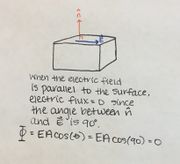 n̂
E⃗
When the electric field
is parallel to the surface,
electric flux = 0 since
the angle between n̂
and E⃗ is 90°.
Φ = EA cos(θ) = EA cos(90) = 0